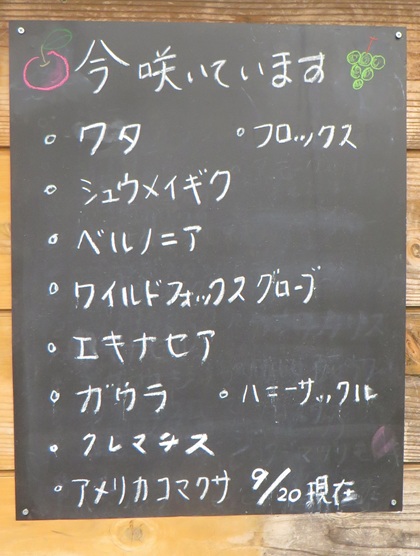 今咲いています
○ワタ ○フロックス
○シュウメイギク
○ベルノニア
○ワイルドフォックスグローブ
○エキナセア
○ガウラ ○ハニーサックル
○クレマチス
○アメリカコマクサ 9/20現在